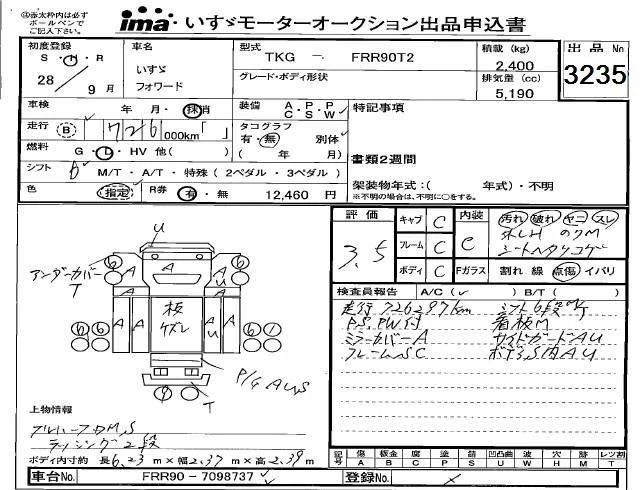 ㊟赤太枠内は必ず
ボールペンで
ご記入下さい。
ima いすゞモーターオークション出品申込書
初度登録
S・H・R
28年9月
車名
いすゞ
フォワード
型式
TKG - FRR90T2
グレード・ボディ形状
積載 (kg)
2,400
排気量 (cc)
5,190
出品No.
3235
車検 年 月・抹消
装備 A・P・P C・S・W
特記事項
走行 B 726 000km「 」
タコグラフ
有・無 別体
( 年 月)
書類2週間
燃料 G・L・HV 他( )
シフト 6 M/T・A/T・特殊 (2ペダル・3ペダル)
架装物年式:( 年式)・不明
※不明の場合は、何不明に○をする。
色 (指定) R券 有・無 12,460 円
評価
3.5
キャブ C
フレーム C
ボディ C
内装 C
汚れ 破れ ヤニ スレ
シートヘタリコゲ
Fガラス 割れ 線 点傷 イバリ
検査員報告 A/C( ✓ ) B/T( )
走行 726297km シフト6段M/T
P.S, PW付 看板M
ミラーカバーA サイドガードAU
フレームSC ボデーS内AU
U
アンダーカバー
T
6 6
A A A A U
板
ケズレ
P/G AU,S
T
上物情報
アルハーフDM,S
ラッシング2段
ボディ内寸約 長6.23m×幅2.37m×高2.39m
記号 傷 A 板金 B 腐 C 塗 P 錆 S 凹凸曲 U 波 W 穴 H 跡 M レツ割 T
車台No. FRR90 - 7098737
登録No.